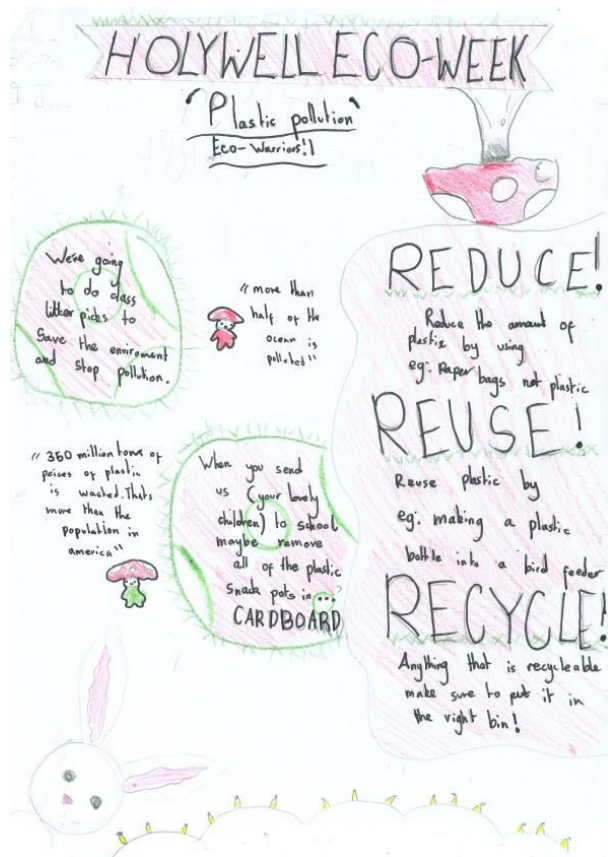 HOLYWELL ECO-WEEK
"Plastic pollution"
Eco-Warriors!!
We're going
to do class
litter picks to
Save the enviroment
and stop pollution.
"more than
half of the
ocean is
polluted"
"350 million tons of
peices of plastic
is wasted. Thats
more than the
population in
america"
When you send
us (your lovely
children) to school
maybe remove
all of the plastic
Snack pots in
CARDBOARD
REDUCE!
Reduce the amount of
plastic by using
eg: Paper bags not plastic
REUSE!
Reuse plastic by
eg. making a plastic
bottle into a bird feeder
RECYCLE!
Anything that is recycleable
make sure to put it in
the right bin!